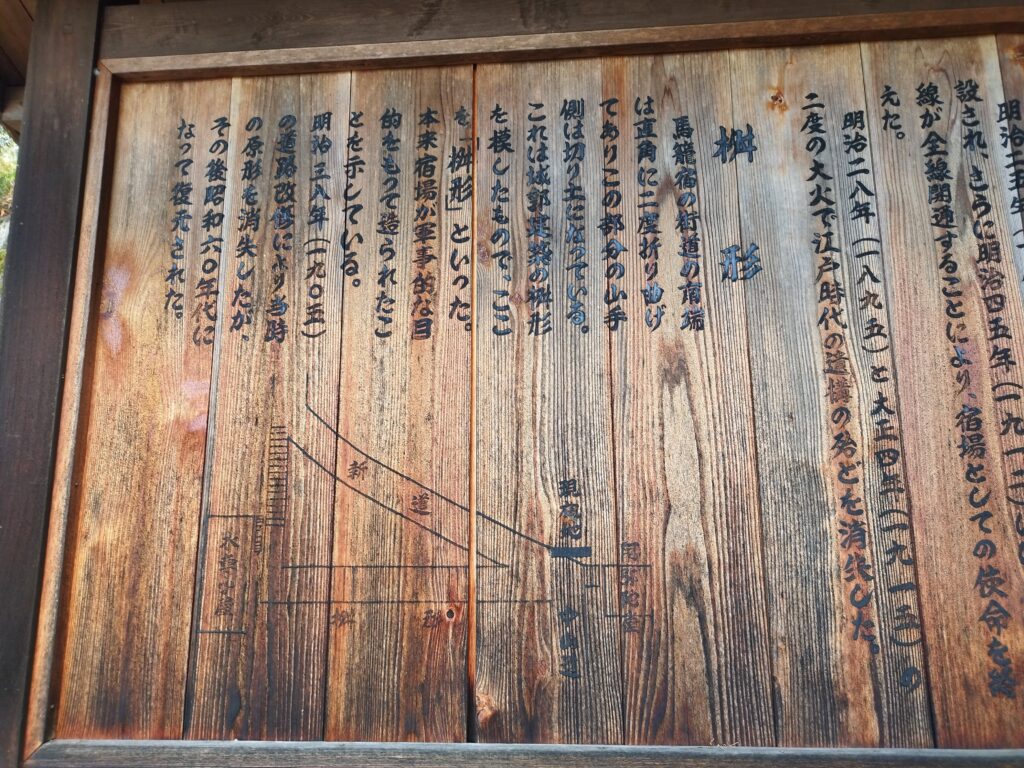 明治二五年(
設され、さらに明治四五年(一九一二)
線が全線開通することにより、宿場としての使命を終
えた。
明治二八年(一八九五)と大正四年(一九一五)の
二度の大火で江戸時代の遺構の殆どを消失した。
桝形
馬籠宿の街道の南端
は直角に二度折り曲げ
てありこの部分の山手
側は切り土になっている。
これは城郭建築の桝形
を模したもので、ここ
を「桝形」といった。
本来宿場が軍事的な目
的をもって造られたこ
とを示している。
明治三八年(一九〇五)
の道路改修により当時
の原形を消失したが、
その後昭和六〇年代に
なって復元された。
新道
現在地
中山道
桝形
水車小屋